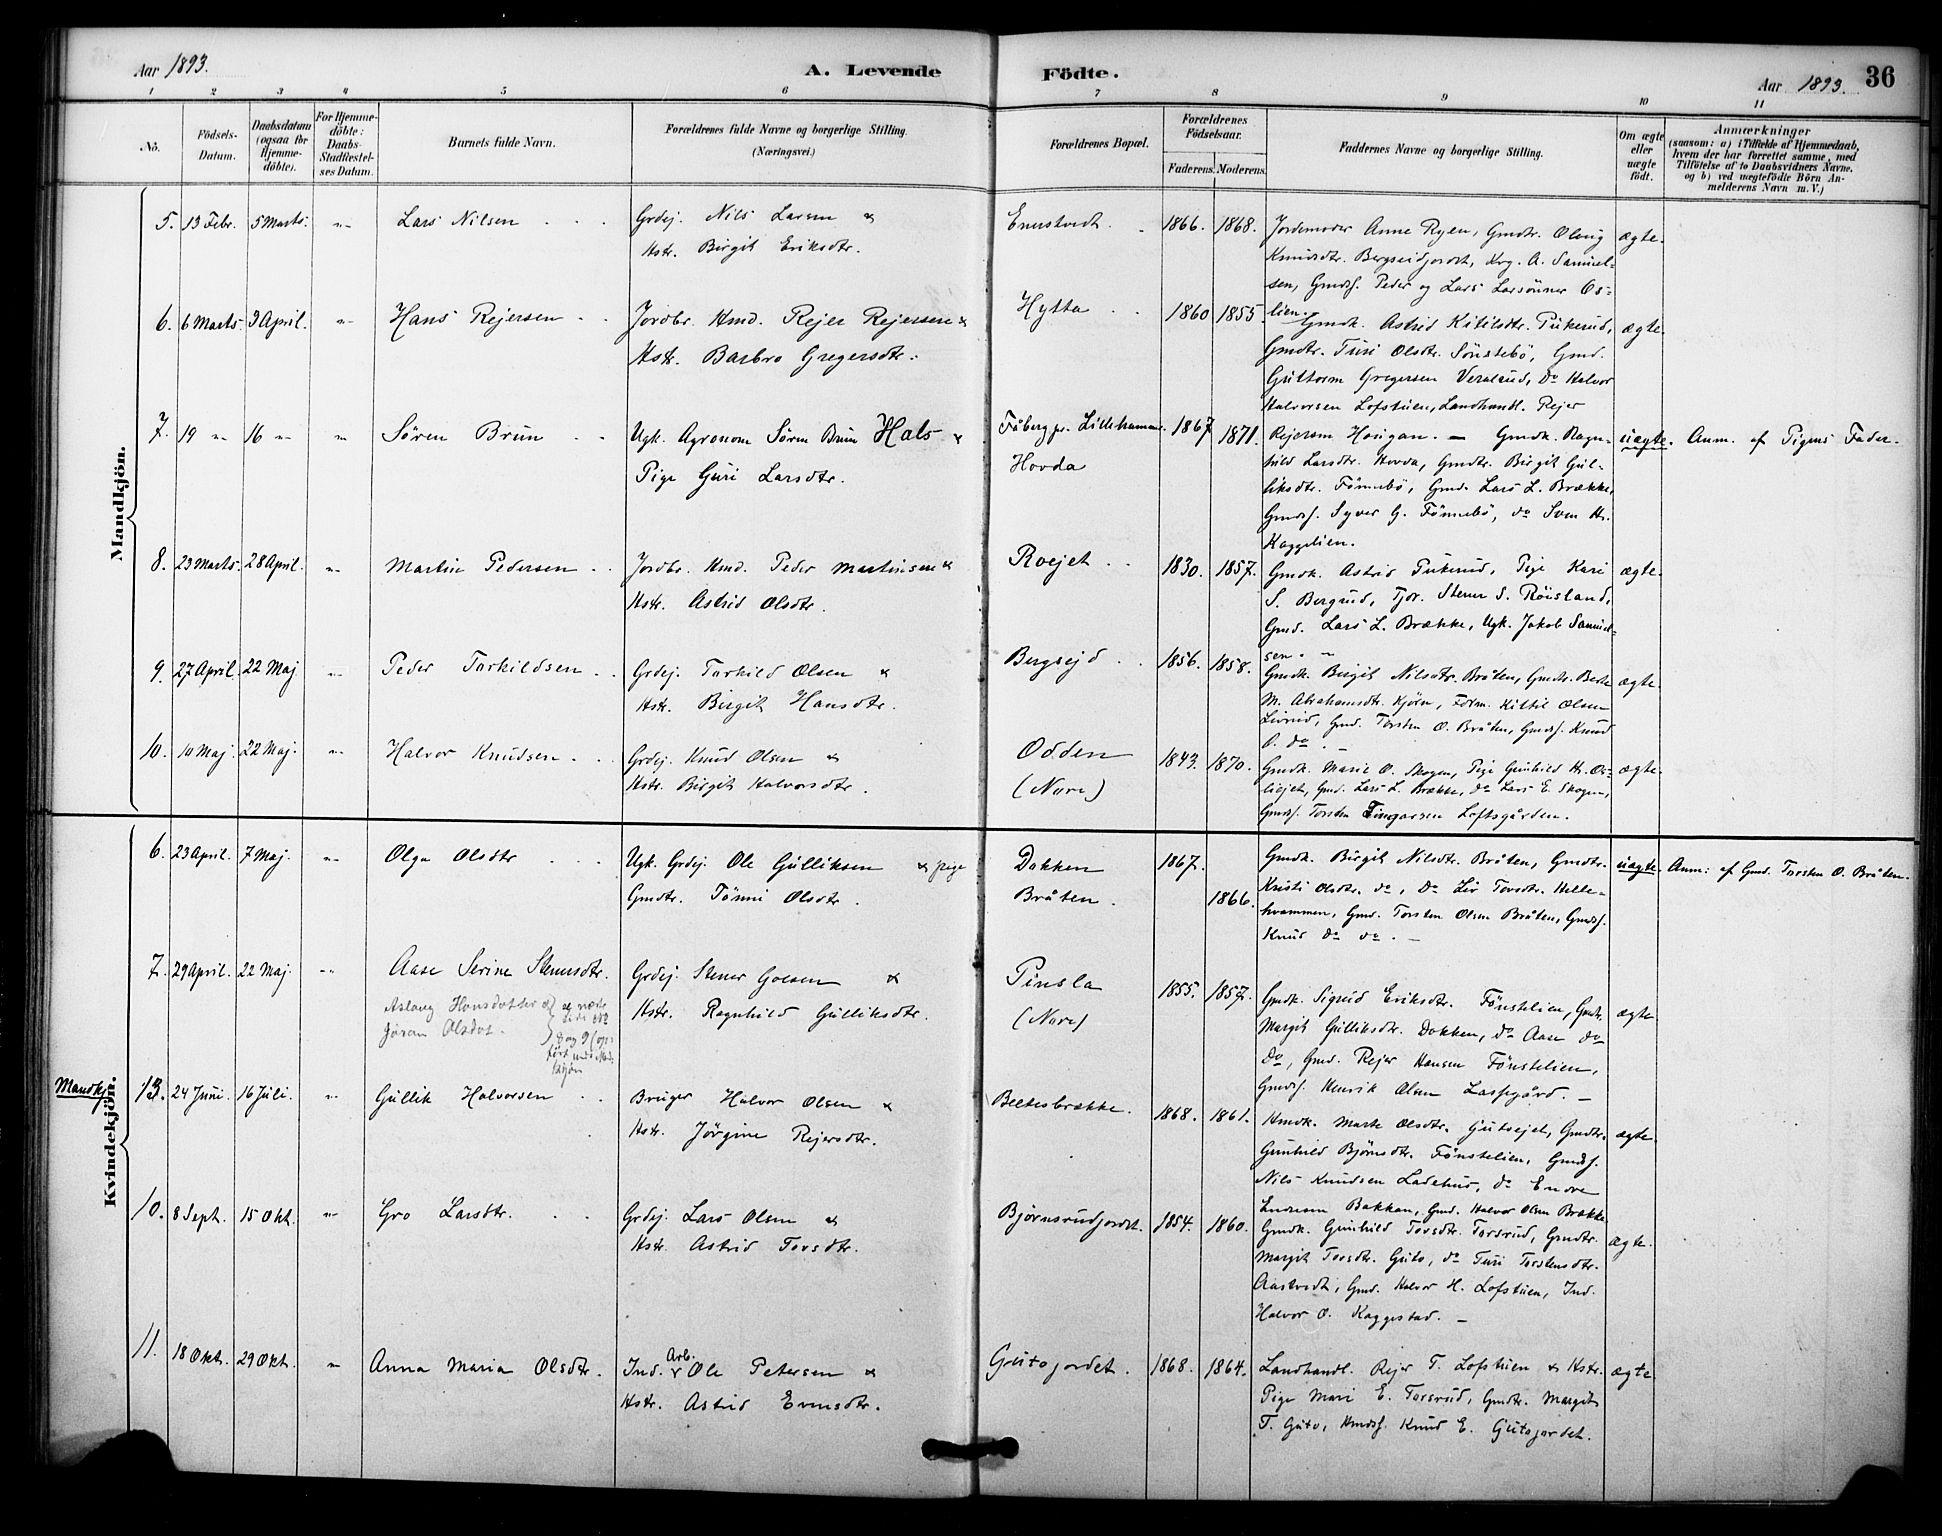 Aar 1893.
A. Levende Födte.
Aar 1893. 36
1 2 3 4 5 6 7 8 9 10 11
No.
Födsels-Datum.
Daabsdatum (ogsaa for Hjemme-döbte).
For Hjemme-döbte: Daabs-Stadfæstel-ses Datum.
Barnets fulde Navn.
Forældrenes fulde Navne og borgerlige Stilling. (Næringsvei.)
Forældrenes Bopæl.
Forældrenes Födselsaar.
Faderens. Moderens.
Faddernes Navne og borgerlige Stilling.
Om ægte eller uægte födt.
Anmærkninger
(saasom: a) i Tilfælde af Hjemmedaab,
hvem der har forrettet samme, med
Tilföielse af to Daabsvidners Navne,
og b) ved uægtefödte Börn An-
melderens Navn m. V.)
Mandkjön.
5. 13 Febr. 5 Marts. -"- Lars Nilsen
Grdej. Nils Larsen &
Hstr. Birgit Eriksdtr.
1866. 1868.
Jordemoder Anne Ryen, Gmdtr. Olaug
Knudsdtr. Bergseidjordet, Krg. A. Samuel-
sen, Gmdsf. Peder og Lars Larsönner Os-
lien.
ægte.
6. 6 Marts. 3 April. -"- Hans Rejersen
Jordbr. Hmd. Rejer Rejersen &
Hstr. Barbro Gregersdtr.
Hytta
1860 1855
Gmdk. Astrid Kitilsdtr. Pukerud,
Gmdtr. Turi Olsdtr. Sönstebö, Gmd.
Guttorm Gregersen Veralrud, Do Halvor
Halvorsen Lofstuen, Landhandl. Rejer
Rejersen Haugan. —
ægte.
7. 19 -"- 16 -"- -"- Sören Brun
Ugk. Agronom Sören Brun Hals &
Pige Guri Larsdtr.
Fåberg pr. Lillehammer.
Hovda
1867 1871.
Gmdk. Ragn-
hild Larsdtr. Hovda, Gmdtr. Birgit Gul-
liksdtr. Fönnebö, Gmd. Lars L. Brække,
Gmdsf. Syver G. Fönnebö, do Sven Hr.
Kaggelien.
uægte.
Anm. af Pigens Fader.
8. 23 Marts. 28 April. -"- Martin Pedersen
Jordbr. Hmd. Peder Martinsen &
Hstr. Astrid Olsdtr.
Roejet
1830. 1857.
Gmdk. Astrid Pukerud, Pige Kari
S. Bergrud, Tjor. Stener S. Röisland,
Gmd. Lars L. Brække, Ugk. Jakob Samuel-
sen.
ægte.
9. 27 April. 22 Maj -"- Peder Torkildsen
Grdej. Torkild Olsen &
Hstr. Birgit Hansdtr.
Bergsejd
1856. 1858.
Gmdk. Birgit Nilsdtr. Bråten, Gmdtr. Berte
M. Abrahamsdtr. Kjörn, Form. Kittil Olsen
Livrud, Gmd. Torsten O. Bråten, Gmdsf. Knud
O. do. —
ægte.
10. 10 Maj. 22 Maj. -"- Halvor Knudsen
Grdej. Knud Olsen &
Hstr. Birgit Halvorsdtr.
Odden
(Nore)
1843. 1870.
Gmdk. Marie O. Skogen, Pige Gunhild Hr. Os-
liejet, Gmd. Lars L. Brække, do Lars E. Skogen,
Gmdsf. Torsten Loftsgården.
ægte.
Kvindekjön.
6. 23 April. 7 Maj. -"- Olga Olsdtr
Ugk. Grdej. Ole Gulliksen & pige
Gmdtr. Tönni Olsdtr.
Dokken
Bråten.
1867. 1866.
Gmdk. Birgit Nilsdtr. Bråten, Gmdtr.
Kristi Olsdtr. do, Do Liv Tovsdtr. Helle-
hvammen, Gmd. Torsten Olsen Bråten, Gmdsf.
Knud Do do. —
uægte.
Anm: af Gmd. Torsten O. Bråten.
7. 29 April. 22 Maj. -"- Aase Serine Stenersdtr.
Aslaug Hansdatter og
Jöran Olsdat.
Grdej. Stener Goesen &
Hstr. Ragnhild Gulliksdtr.
Pinsla
(Nore)
1855. 1857.
Gmdk. Sigrid Eriksdtr. Fönstelien, Gmdtr.
Margit Gulliksdtr. Dokken, do Aase do
Do, Gmd. Rejer Hansen Fönstelien,
Gmdsf. Henrik Olsen Lassegård. —
ægte
Mandkj. 13. 24 Juni. 16 Juli. -"- Gullik Halvorsen
Bruger Halvor Olsen &
Hstr. Jörgine Rejersdtr.
1868. 1861.
Hmdk. Marte Olsdtr. Gutuejet, Gmdtr.
Gunhild Björnsdtr. Fönstelien, Gmdsf.
Nils Knudsen Ladehus, do Endre
Endresen Bakkan, Gmd. Halvor Olsen Brække
ægte.
10. 8 Sept. 15 Okt. -"- Gro Larsdtr.
Grdej. Lars Olsen &
Hstr. Astrid Tovsdtr.
Björnsrudjordet.
1854. 1860.
Gmdk. Gunhild Tovsdtr. Torsrud, Gmdtr.
Margit Tovsdtr. Guto, do Turi Torstensdtr.
Aastvedt, Gmd. Halvor H. Lofstuen, Ind.
Halvor O. Kaggestad. —
ægte.
11. 18 Okt. 29 Okt. -"- Anna Maria Olsdtr.
Ind. Arb. Ole Petersen &
Hstr. Astrid Evensdtr.
Gutojordet.
1868. 1864.
Landhandl. Rejer T. Lofstuen & Hstr.
Pige Mari E. Torsrud, Gmdtr. Margit
T. Guto, Hmdsf. Knud E. Gutojordet.
ægte